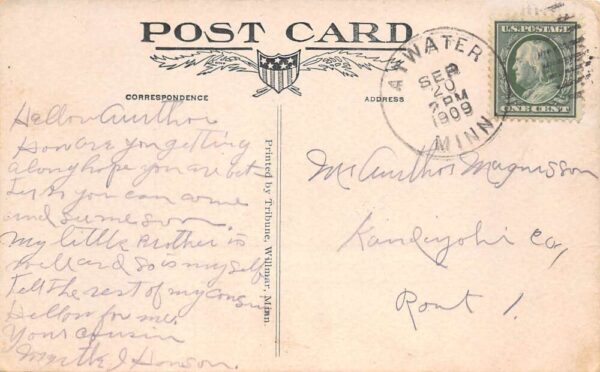 POST CARD
CORRESPONDENCE
ADDRESS
ATWATER
SEP
20
2 PM
1909
MINN.
U.S. POSTAGE
ONE CENT
Hellow Aurthor
How are you getting
along hope you are bet
ter so you can come
and see me soon.
My little Brother is
well and so is my self
Tell the rest of my cousins
Hellow for me.
Your cousin
Myrtle J Hanson.
Printed by Tribune, Willmar, Minn.
Mr Aurthor Magnusson
Kandiyohi Co,
Rout 1.